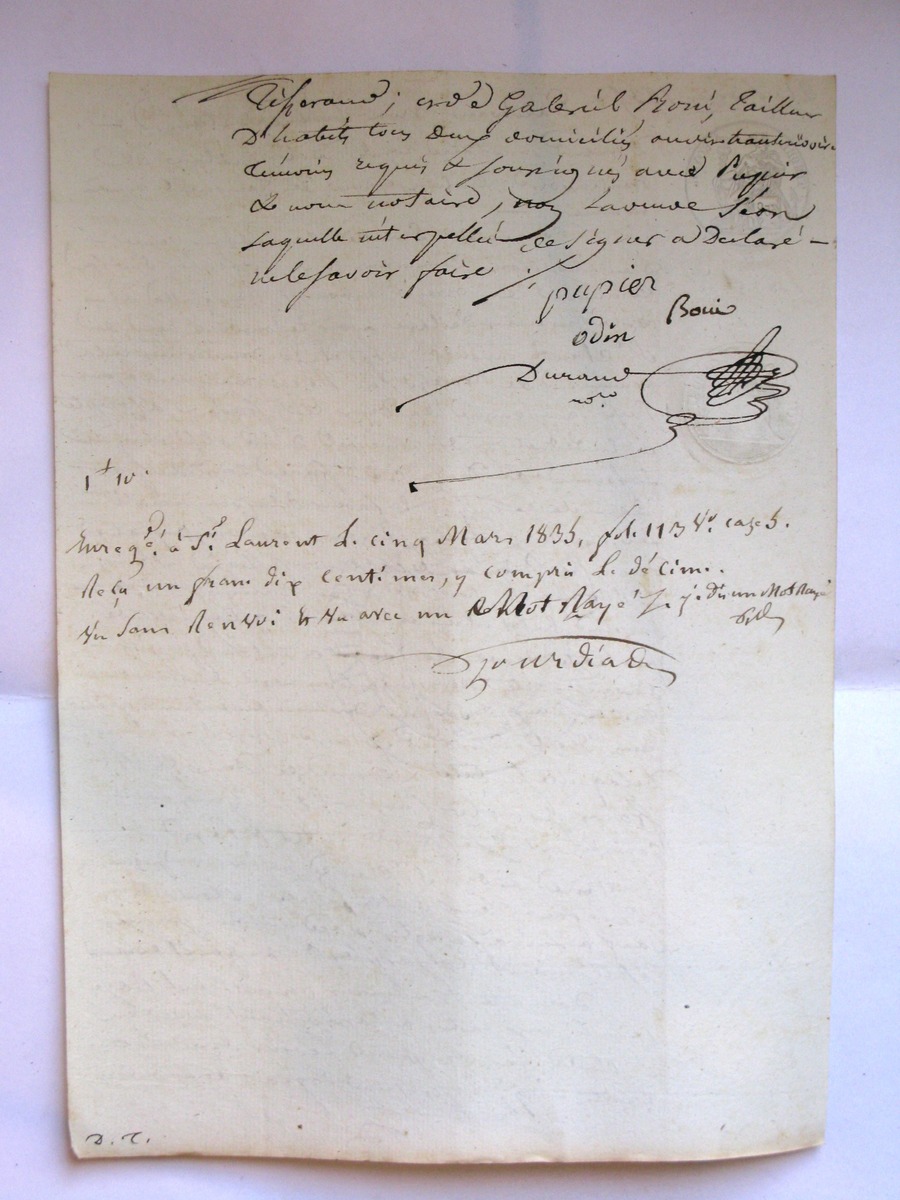 Tisserand; et de Gabriel Boui, Tailleur
D'habits tous deux domiciliés
témoins requis & soussignés avec Pupier
& nous notaire, non La veuve Séon
Laquelle interpellée de signer a Déclaré -
ne le savoir faire ./.
pupier
Boui
odin
Durand
nore
1f 10c
Enregé. à St. Laurent le cinq Mars 1835, fo. 113 Vo. case 5.
Reçu un franc dix centimes, y compris le décime.
Vu Sans Renvoi & Vu avec un Mot Rayé je dis un Mot Rayé
D. T.